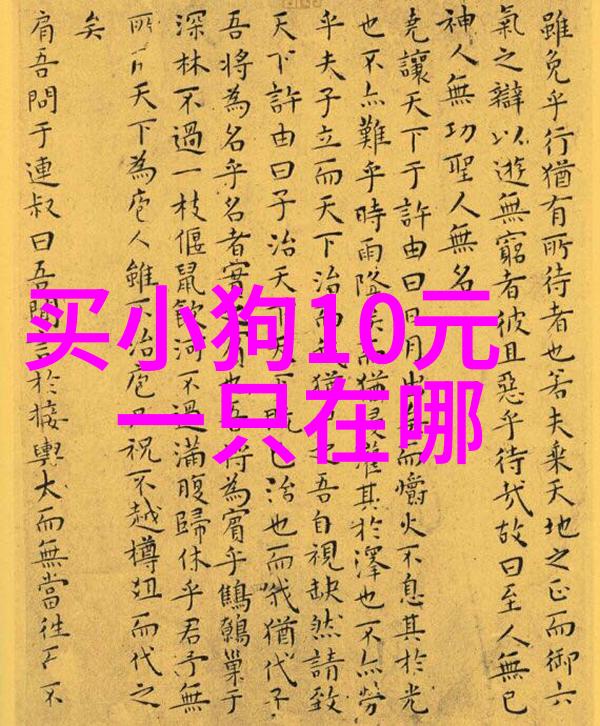 雖免乎行猶有所待者也若夫乘天地之正而御六
氣之辯以遊無窮者彼且惡乎待哉故曰至人無己
神人無功聖人無名
堯讓天下于許由曰日月出而嚼火不息其於光
也不亦難乎時雨降矣而猶浸灌其於澤也不亦勞
乎夫子立而天下治而我猶之吾自視缺然請致
天下許由曰子治天下天下既已治也而我猶代子
吾將為名乎名者實賓也吾將為賓乎鷦鷯巢于
深林不過一枝偃鼠飲河不過滿腹歸休乎君予無
所天下為庖人雖不治庖尸祝不越樽俎而代之
矣
肩吾問于連叔曰吾聞言於接輿大而無當往不
买小狗10元
一只在哪